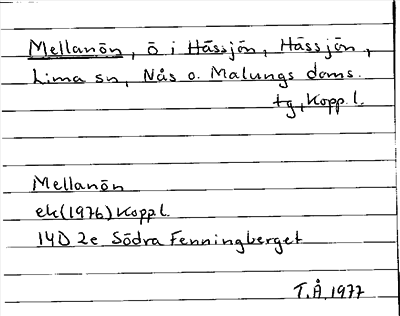 Mellanön, ö i Hässjön, Hässjön,
Lima sn, Nås o. Malungs doms.
tg, Kopp. l.
Mellanön
ek(1976) Koppl.
14D 2e Södra Fenningberget
T.Å. 1977